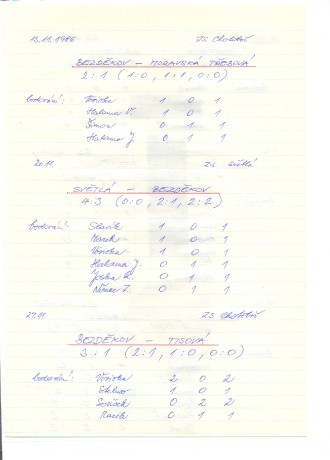 13.11.1986 ZS Chotěboř
BEZDĚKOV - MORAVSKÁ TŘEBOVÁ
2:1 (1:0, 1:1, 0:0)
bodování: Vorička 1 0 1
Halama V. 1 0 1
Šimon 0 1 1
Halama J. 0 1 1
20.11. ZS Světlá
SVĚTLÁ - BEZDĚKOV
4:3 (0:0, 2:1, 2:2)
bodování: Slavík 1 0 1
Marek 1 0 1
Vorička 1 0 1
Halama J. 0 1 1
0 1 1
Němec Z. 0 1 1
27.11 ZS Chotěboř
BEZDĚKOV - TISOVÁ
3:1 (2:1, 1:0, 0:0)
bodování: Vorička 2 0 2
1 0 1
0 2 2
Marek 0 1 1